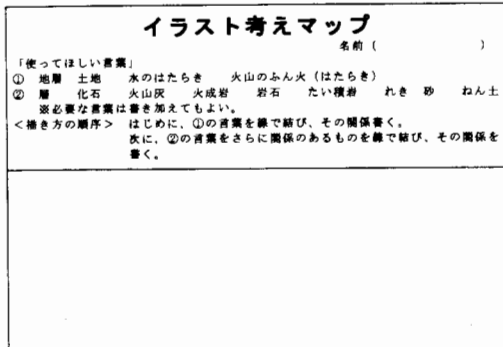 イラスト考えマップ
名前（　　　　　　　　）
「使ってほしい言葉」
①　地層　土地　水のはたらき　火山のふん火（はたらき）
②　層　化石　火山灰　火成岩　岩石　たい積岩　れき　砂　ねん土
※必要な言葉は書き加えてもよい。
＜描き方の順序＞　はじめに、①の言葉を線で結び、その関係書く。
次に、②の言葉をさらに関係のあるものを線で結び、その関係を
書く。